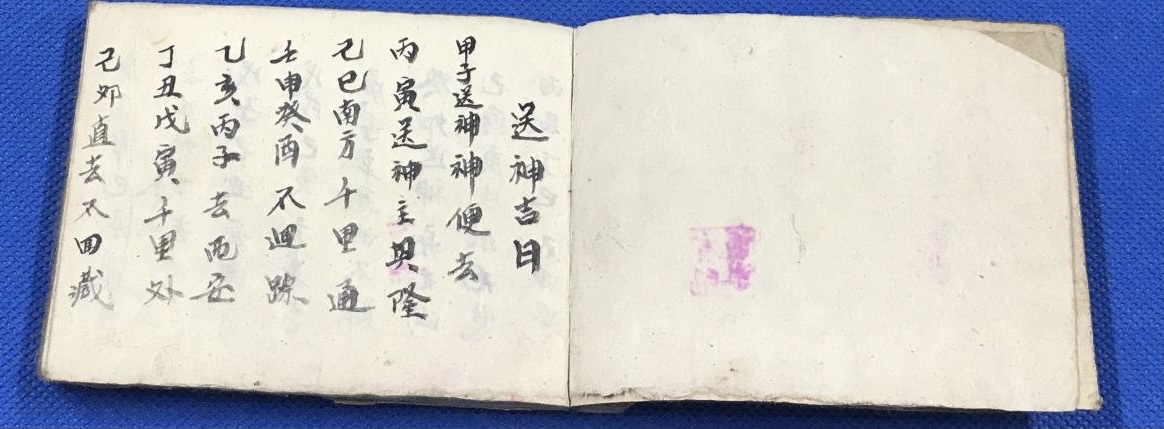 送神吉日
甲子送神神便去
丙寅送神主興隆
己巳南方千里通
壬申癸酉不迴踪
乙亥丙子去西
丁丑戊寅千里外
己卯直去不回藏